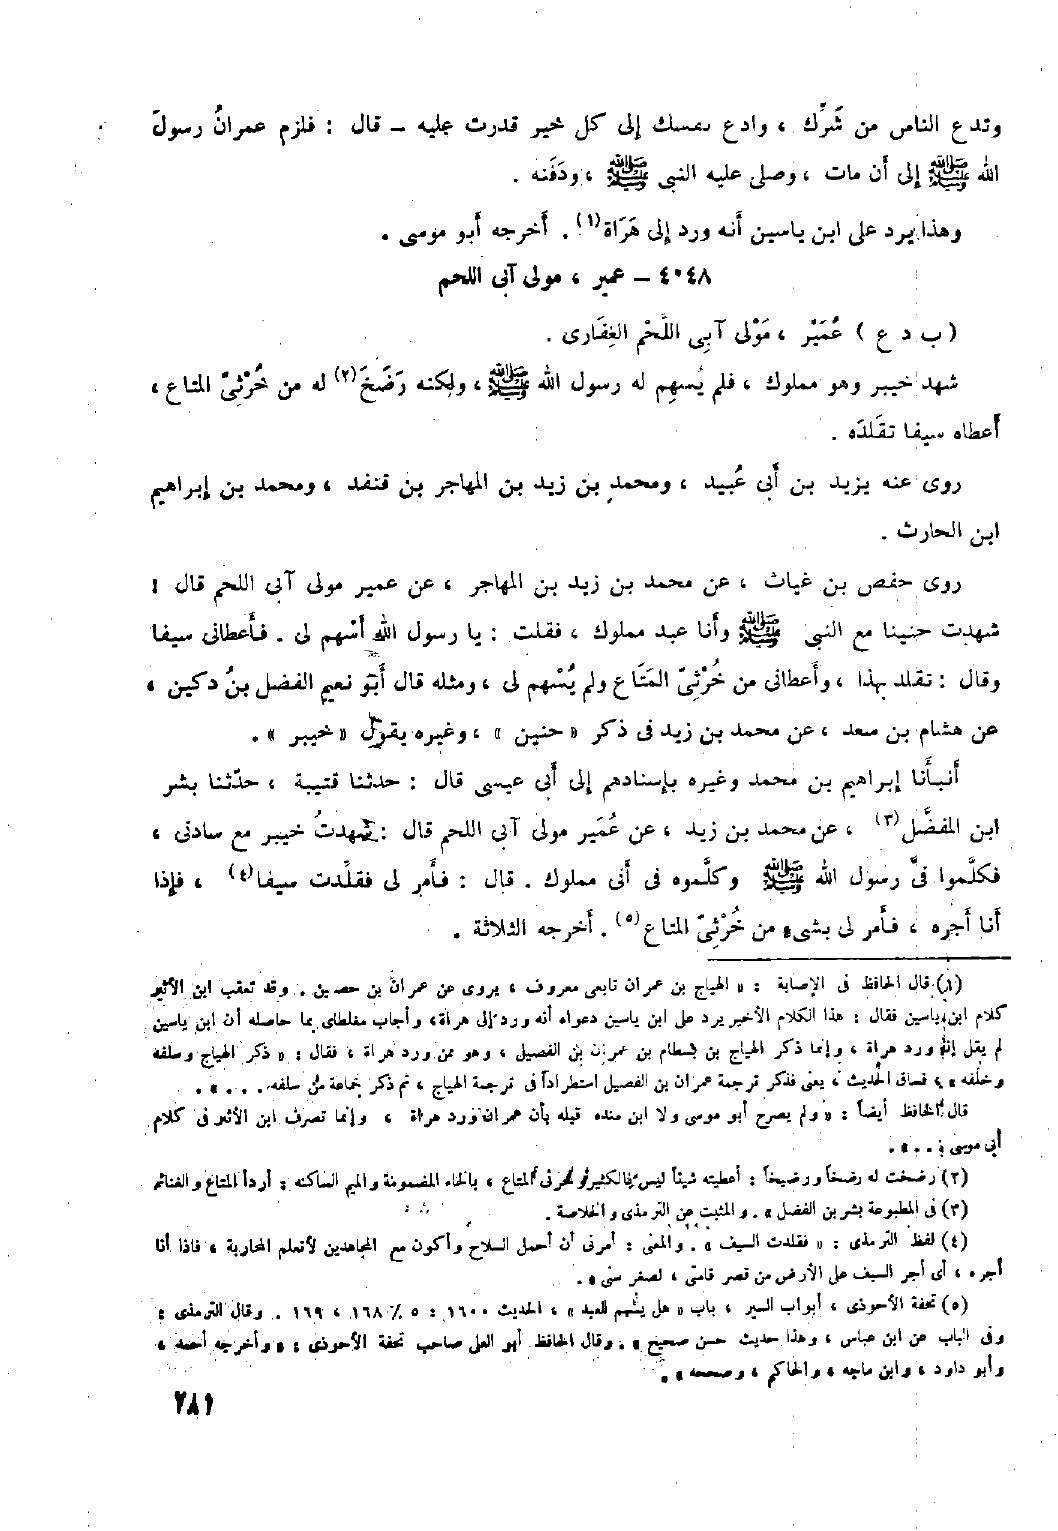 وتدع الناس من شَرِّك ، وادع نفسك إلى كل خير قدرت عليه – قال : فلزم عمرانُ رسولَ
الله ﷺ إلى أن مات ، وصلى عليه النبى ﷺ ، ودَفَنه .
وهذا يرد على ابن ياسين أنه ورد إلى هَرَاة(١) . أخرجه أبو موسى .
٤٠٤٨ – عمير ، مولى آبى اللحم
( ب د ع ) عُمَيْر ، مَوْلى آبِى اللَّحْم الغِفَارى .
شهد خيبر وهو مملوك ، فلم يُسهِم له رسول الله ﷺ ، ولكنه رَضَخَ(٢) له من خُرْثِىّ المتاع ،
أعطاه سيفا تقَلدَه .
روى عنه يزيد بن أبى عُبيد ، ومحمد بن زيد بن المهاجر بن قنفد ، ومحمد بن إبراهيم
ابن الحارث .
روى حفص بن غياث ، عن محمد بن زيد بن المهاجر ، عن عمير مولى آبى اللحم قال :
شهدت حنينا مع النبى ﷺ وأنا عبد مملوك ، فقلت : يا رسول الله أسْهم لى . فأعطانى سيفا
وقال : تقلد بهذا ، وأعطانى من خُرْثِىّ المَتَاع ولم يُسْهم لى ، ومثله قال أبو نعيم الفضل بنُ دكين ،
عن هشام بن سعد ، عن محمد بن زيد فى ذكر « حنين » ، وغيره يقول « خيبر » .
أنبأنا إبراهيم بن محمد وغيره بإسنادهم إلى أبى عيسى قال : حدثنا قتيبة ، حدّثنا بشر
ابن المفضَّل(٣) ، عن محمد بن زيد ، عن عُمَير مولى آبى اللحم قال : شهدتُ خيبر مع سادتى ،
فكلَّموا فىَّ رسول الله ﷺ وكلَّموه فى أنى مملوك . قال : فأمر لى فقلِّدت سيفا(٤) ، فإذا
أنا أجره ، فأمر لى بشىء من خُرْثِىّ المتاع(٥) . أخرجه الثلاثة .
(١) قال الحافظ فى الإصابة : « الهياج بن عمران تابعى معروف ، يروى عن عمران بن حصين . وقد تعقب ابن الأثير
كلام ابن ياسين فقال : هذا الكلام الأخير يرد على ابن ياسين دعواه أنه ورد إلى هراة ، وأجاب مغلطاى بما حاصله أن ابن ياسين
لم يقل إنه ورد هراة ، وإنما ذكر الهياج بن بسطام بن عمران بن الفصيل ، وهو ممن ورد هراة ، فقال : « ذكر الهياج وسلفه
وخلفه » ، فساق الحديث ، يعنى فذكر ترجمة عمران بن الفصيل استطراداً فى ترجمة الهياج ، ثم ذكر جماعة من سلفه . . . » .
قال الحافظ أيضاً : « ولم يصرح أبو موسى ولا ابن منده قبله بأن عمران ورد هراة ، وإنما تصرف ابن الأثير فى كلام
أبى موسى . . » .
(٢) رضخت له رضخاً ورضيخاً : أعطيته شيئاً ليس بالكثير و المتاع ، بالخاء المضمومة والميم الساكنه : أردأ المتاع والغنائم
(٣) فى المطبوعة بشر بن الفضل » . والمثبت عن الترمذى والخلاصة .
(٤) لفظ الترمذى : « فقلدت السيف » . والمعنى : أمرنى أن أحمل السلاح وأكون مع المجاهدين لأتعلم المحاربة ، فاذا أنا
أجره ، أى أجر السيف على الأرض من قصر قامتى ، لصغر سنى » .
(٥) تحفة الأحوذى ، أبواب السير ، باب « هل يسهم للعبد » ، الحديث ١٦٠٠ : ٥ / ١٦٨ ، ١٦٩ . وقال الترمذى :
وفى الباب عن ابن عباس ، وهذا حديث حسن صحيح » . وقال الحافظ أبو العلى صاحب تحفة الأحوذى : « وأخرجه أحمد ،
وأبو داود ، وابن ماجه ، والحاكم ، وصححه » .
٢٨١